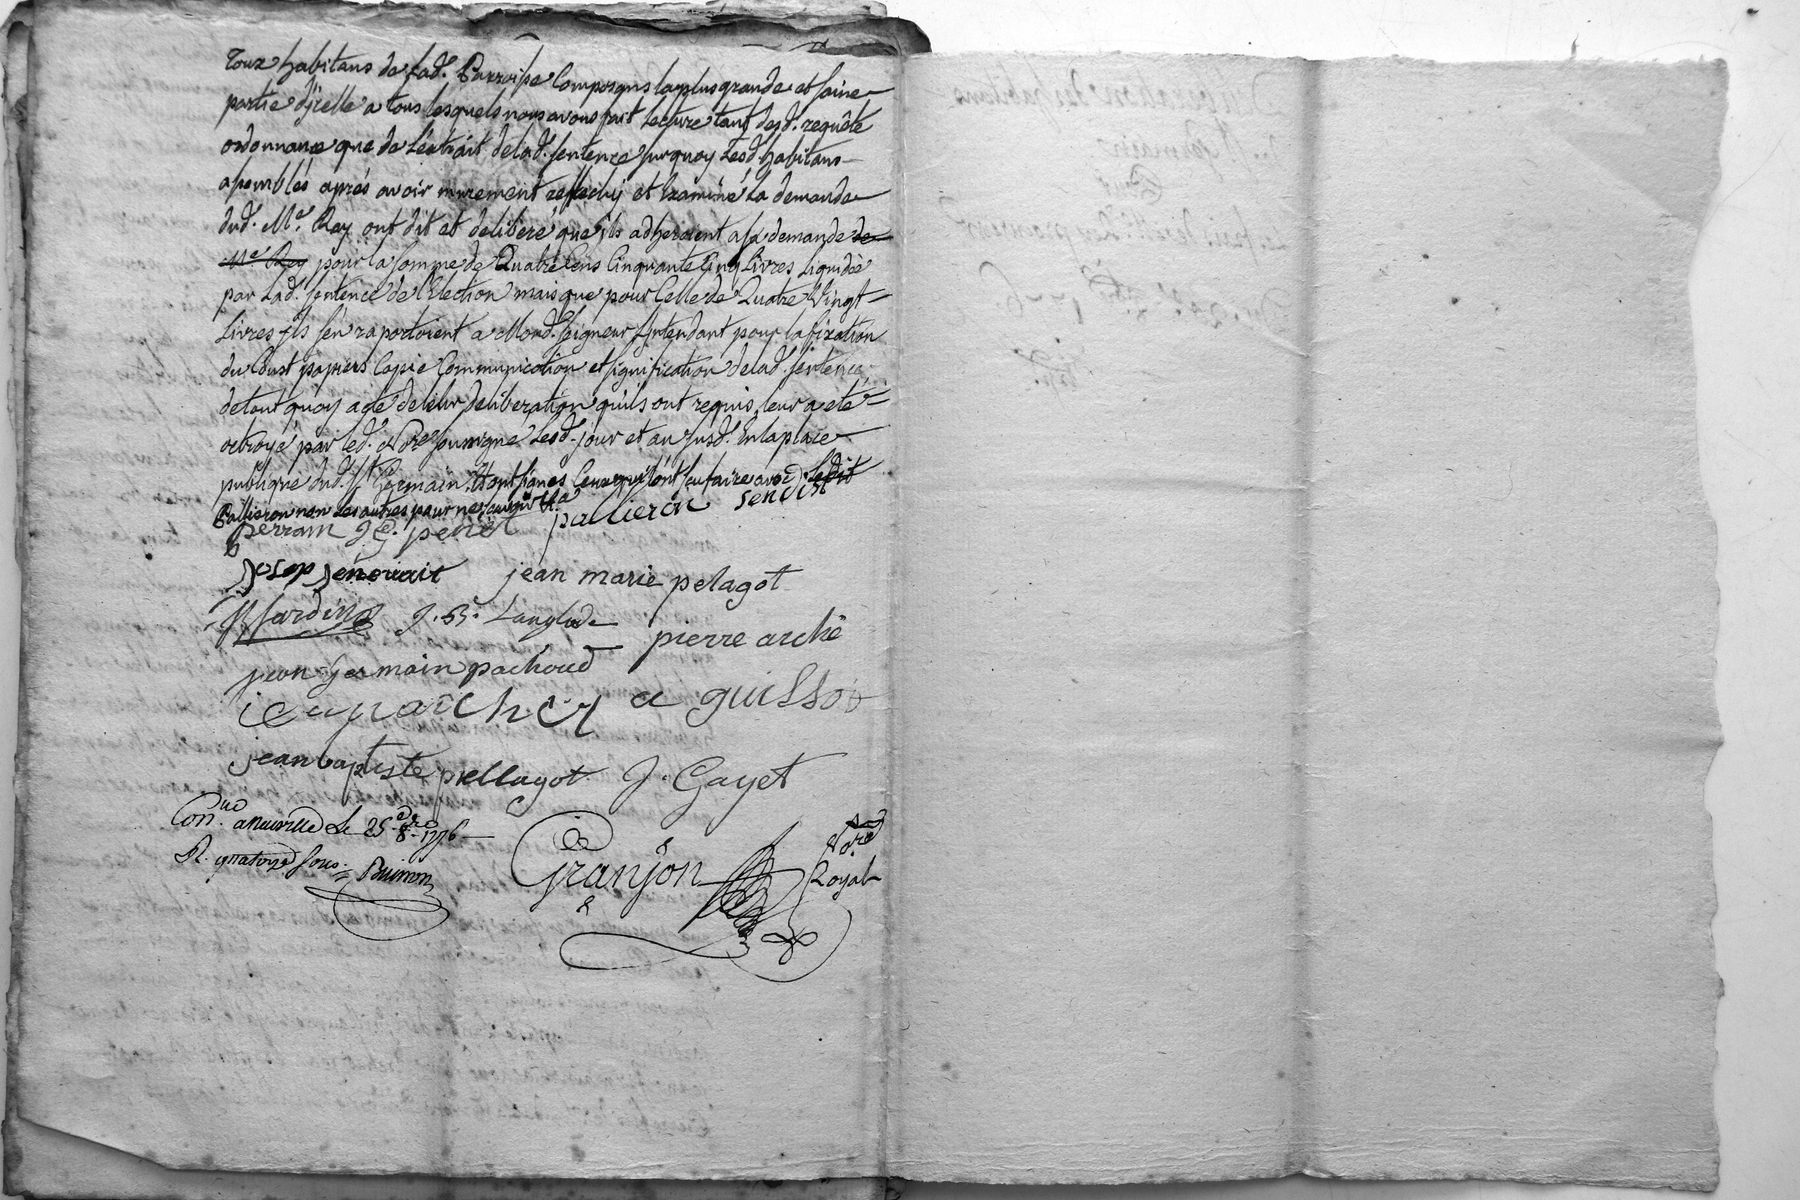 Toux habitans de lad. Parroisse Composans la plus grande et saine
partie d'jcelle a tous lesquels nous avons fait Lecture tant desd. requête
ordonnance que de L'extrait de lad. sentence surquoy Lesd. habitans
assemblés aprés avoir murement reflechij et Examiné La demande
dud. Me. Rey ont dit et deliberé que jls adheroient a sa demande de
Me Rey pour la somme de Quatre Cens Cinquante Cinq Livres Liquidée
par Lad. sentence de l'Election mais que pour Celle de Quatre Vingt =
Livres jls s'en raportoient a Mond. seigneur Intendant pour la fixation
du Coust papiers Copie Communication et signification de lad. sentence
de tout quoy acte de leur deliberation qu'ils ont requis, leur a eté =
octroyé par led. Nore soussigné Lesd. jour et an susd. En la place
publique dud. St Germain. Et ont signés Ceux qui l'ont scu faire avec Ledit
Pallieron non Les autres pour ne scavoir
perram J. C. penet pallieron sendist
Josep Jenevait jean marie pelagot
Jardin J. B. Langlade
pierre arché
jean Germain pachoud
a guissot
jean baptiste pellagot J. Gayet
Con.lé a neuville Le 25. 8.bre 1776
R. quatorze sous =
Granjon Nore
Royal